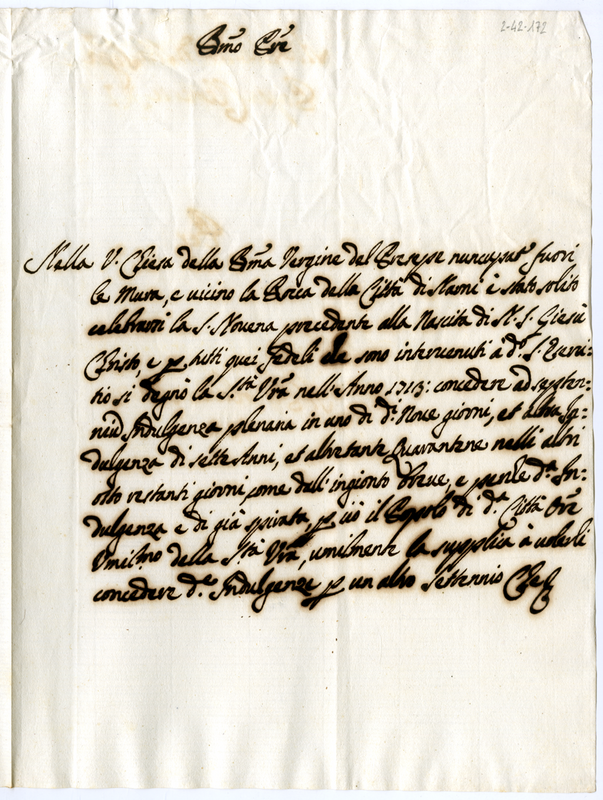 2-42-172
Bmo Pre
Nella V. Chiesa della Bma Vergine del Presepe nuncupat. fuori
le Mura, e vicino la Porta della Città di Narni è stato solito
celebrarsi la S. Novena precedente alla Nascita di N. S. Giesù
Christo, e p tutti quei fedeli che sono intervenuti à d.º S. Eserci-
tio si degnò la S.tà Vra nell'Anno 1713: concedere ad septen-
nium Indulgenza plenaria in uno di d.i Nove giorni, et altra In-
dulgenza di sette Anni, et altretante Quarantene nelli altri
otto restanti giorni come dall'ingionto Breve, e perche d.a In-
dulgenza e di già spirata, p ciò il Popolo di d.a Città Ore
Umilmo della S.tà Vra, umilmente la supplica à volerli
concedere d.e Indulgenze p un altro settennio Che